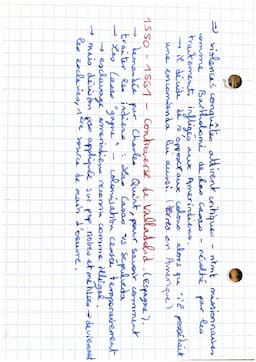 ⇒ violences conquêtes attirent critiques - ntmt missionnaires
comme Bartholomé de Las Casas - révolté par les
traitements infligés aux Amérindiens.
→ il décide de s'opposer aux colons alors qu'il possédait
une encomienda lui aussi (terres en Amérique)
1550 - 1551 - Controverse de Valladolid. (Espagne).
→ demandée par Charles Quint, pour savoir comment
traiter les indiens : Las Casas vs Sepulveda
→ Las Casas "gagne" : colonisation cesse temporairement
→ esclavage amérindiens reconnu comme illégal.
→ mais décision pas appliquée sur noirs et métisses → deviennent
les esclaves, 1ère source de main d'œuvre.